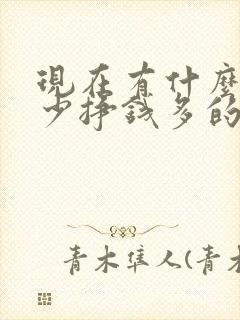 現在有什麼
少掙錢多的
青木隼人(青木